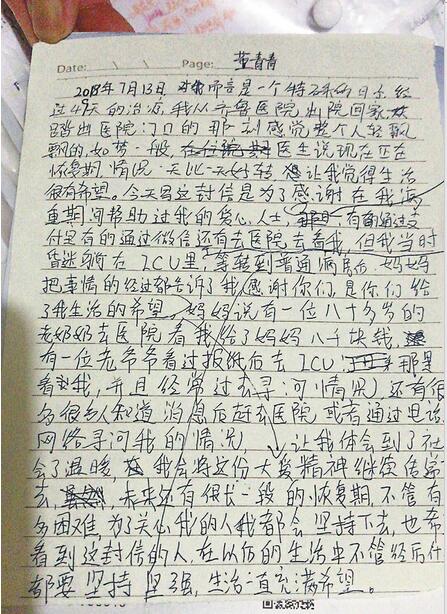 Date: Page: 董青青
2018年7月13日 对我而言是一个特殊的日子 经
过49天的治疗,我从齐鲁医院出院回家,
踏出医院门口的那刻感觉整个人轻飘
飘的,如梦一般,医生说现在正在
恢复期,情况一天比一天好转 让我觉得生活
很有希望。今天写这封信是为了感谢在我病
重期间帮助过我的爱心人士, 有的通过支
付宝有的通过微信还有去医院去看我,但我当时
昏迷躺在ICU里,等转到普通病房后,妈妈
把事情的经过都告诉了我 感谢你们,是你们给
了我生活的希望。妈妈说有一位八十多岁的
老奶奶去医院看我给了妈妈八千块钱,
有一位老爷爷看过报纸后去ICU 那里
看我,并且经常过去寻问情况 还有很
多很多人知道消息后赶去医院 或者通过电话
网络寻问我的情况 让我体会到了社
会了温暖, 我会将这份大爱精神继续传递
去, 未来还有很长一段的恢复期,不管有
多困难,为了关心我的人我都会坚持下去,也希
看到这封信的人,在以后的生活中不管经历什
都要坚持 坚强,生活一直充满希望。